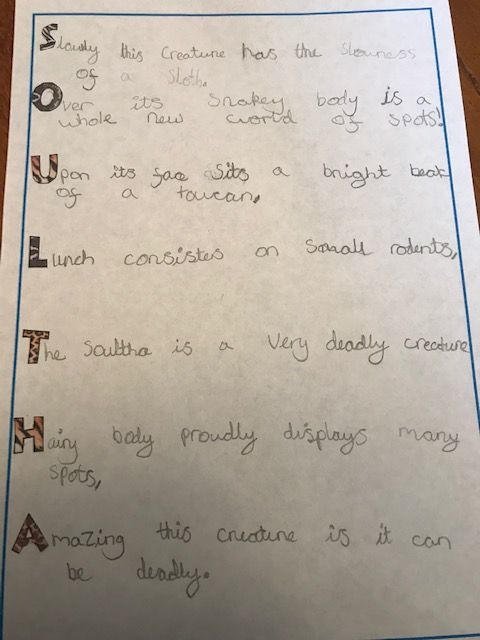 Slowly this Creature has the Slowness
of a Sloth.
Over its Snakey body is a
whole new world of spots!
Upon its face Sits a bright beak
of a toucan,
Lunch consistes on Small rodents,
The Soultha is a very deadly creature
Hairy body proudly displays many
spots,
AmaZing this creature is it can
be deadly.